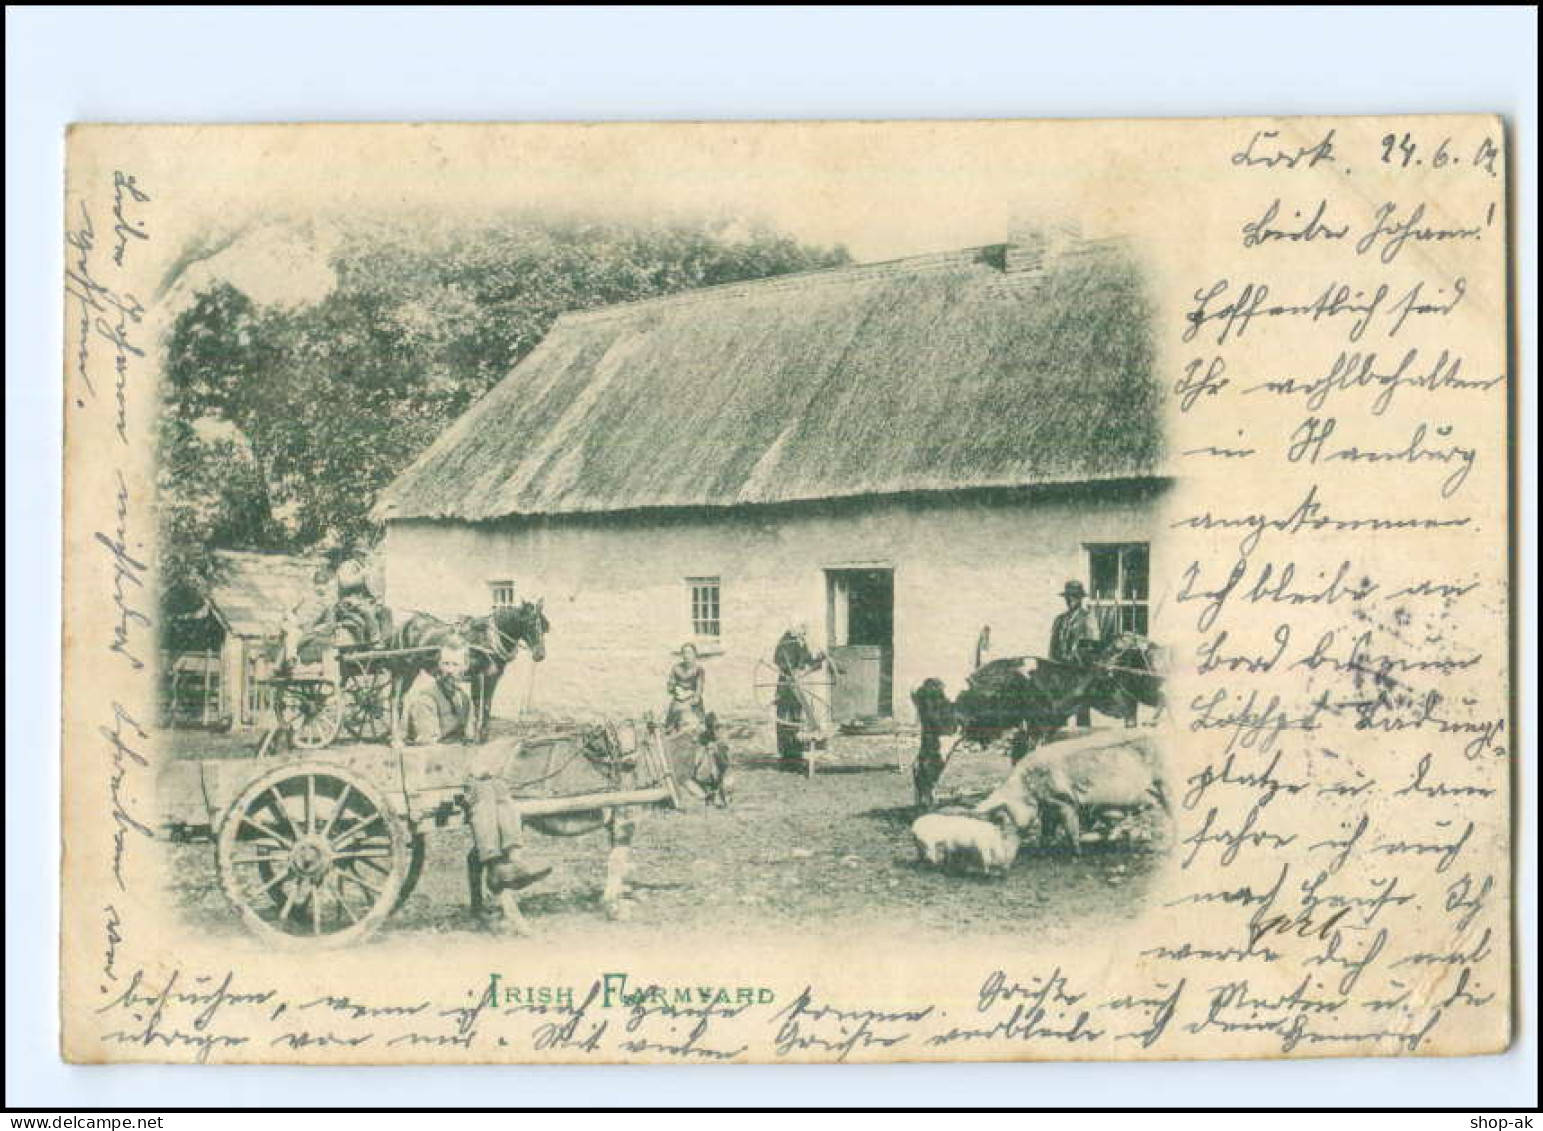 Cork, 24.6.02
Lieber Johann!
Hoffentlich seid
Ihr wohlbehalten
in Hamburg
angekommen.
Ich bleibe an
Bord bis zum
Ladungs
platze u. dann
fahre ich auch
nach Hause. Ich
werde dich mal
besuchen, wenn ich nach Hause komme. Grüße auch Martin u. die
übrige von mir. Mit vielen Grüßen verbleibe ich dein Heinrich.
IRISH FARMYARD
Lieber Johann
shop-ak